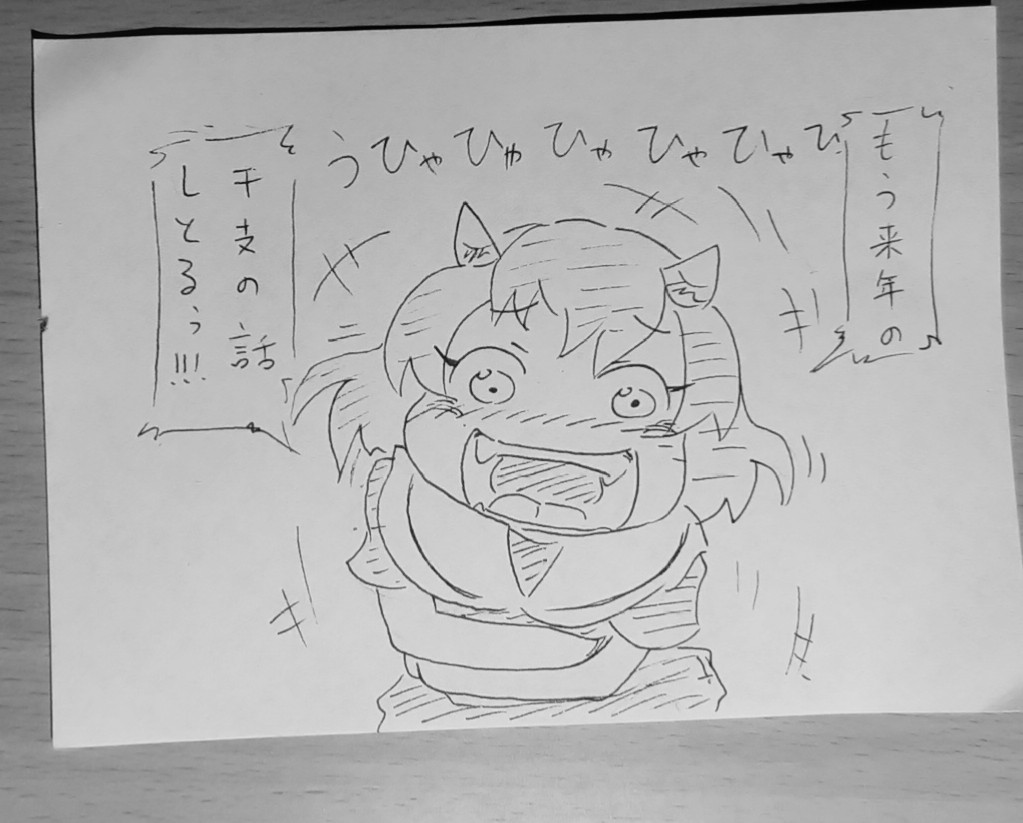 もう来年の
うひゃひゃひゃひゃひゃひ
干支の話
しとるぅ!!!